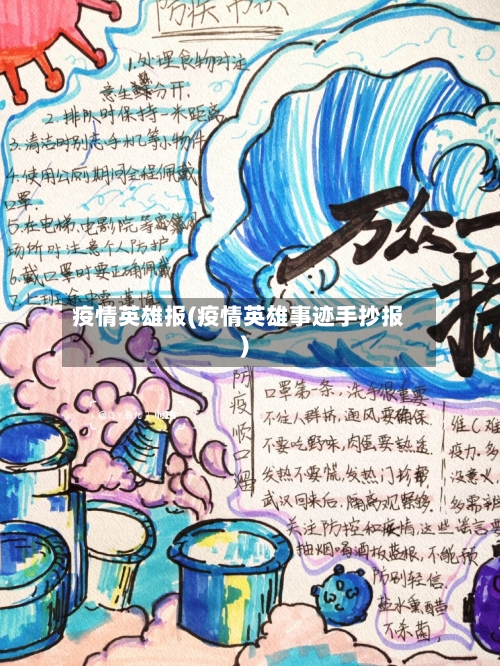 防疫常识
1.处理食物时注
意生熟分开.
2.排队时保持一米距离
3.清洁时别忘手机等小物件
4.使用公厕期间全程佩戴
口罩.
5.在电梯,电影院等密集
场所时注意个人防护
6.戴口罩时要正确佩戴
万众一
疫情英雄报(疫情英雄事迹手抄报
)
防疫顺口溜
口罩第一条,洗手很重要.
不往人群挤,通风要确保
不要吃野味,肉蛋要熟透
发热不要慌,发热门诊
武汉回来后,隔离观察
关注防控和疫情,这些谣言
抽烟喝酒板蓝根,不能预
防别轻信.
盐水熏醋
不杀菌,
维C难
疫力,多
没意义
多需